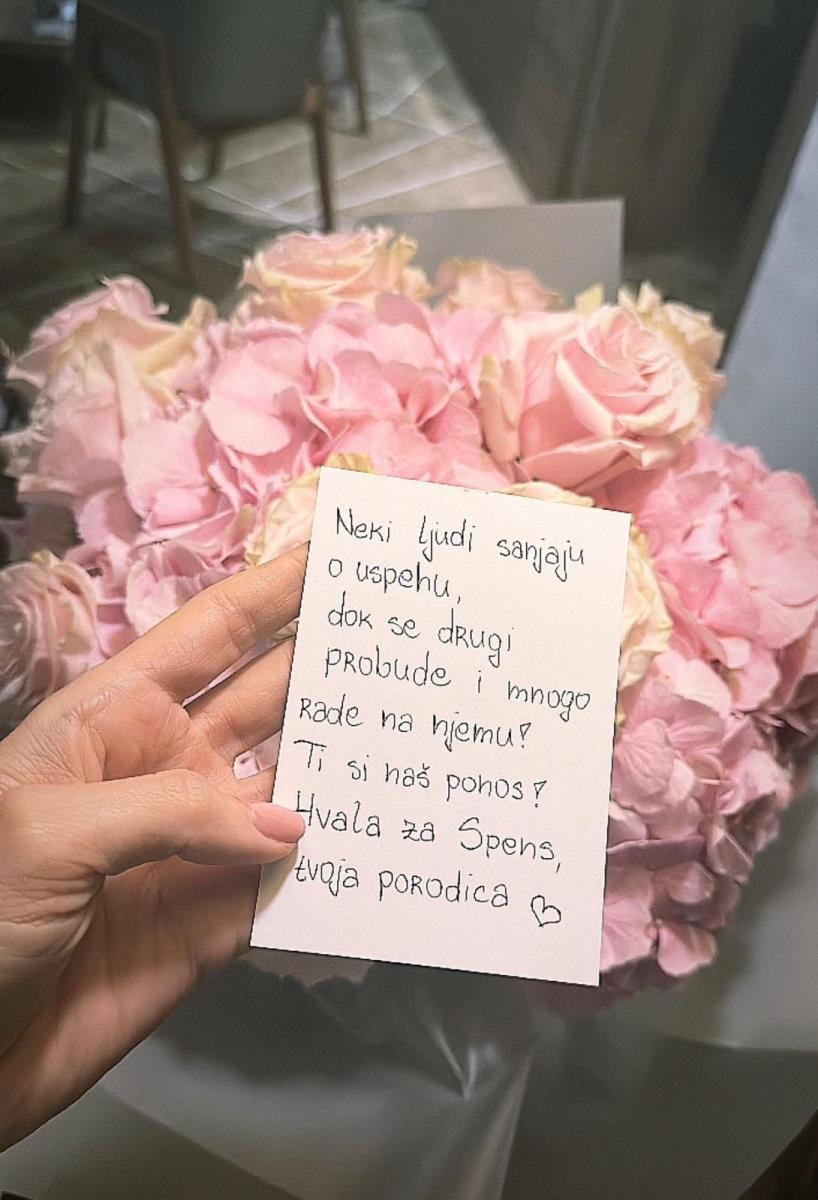 Neki ljudi sanjaju
o uspehu,
dok se drugi
probude i mnogo
rade na njemu!
Ti si naš ponos!
Hvala za Spens,
tvoja porodica ♡